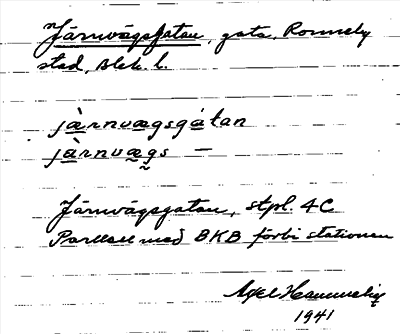 Järnvägsgatan, gata, Ronneby
stad, Blek. l.
jàrnvægsgátan
jàrnvægs —
Järnvägsgatan, stpl. 4C
Parallell med BKB förbi stationen
Axel
1941